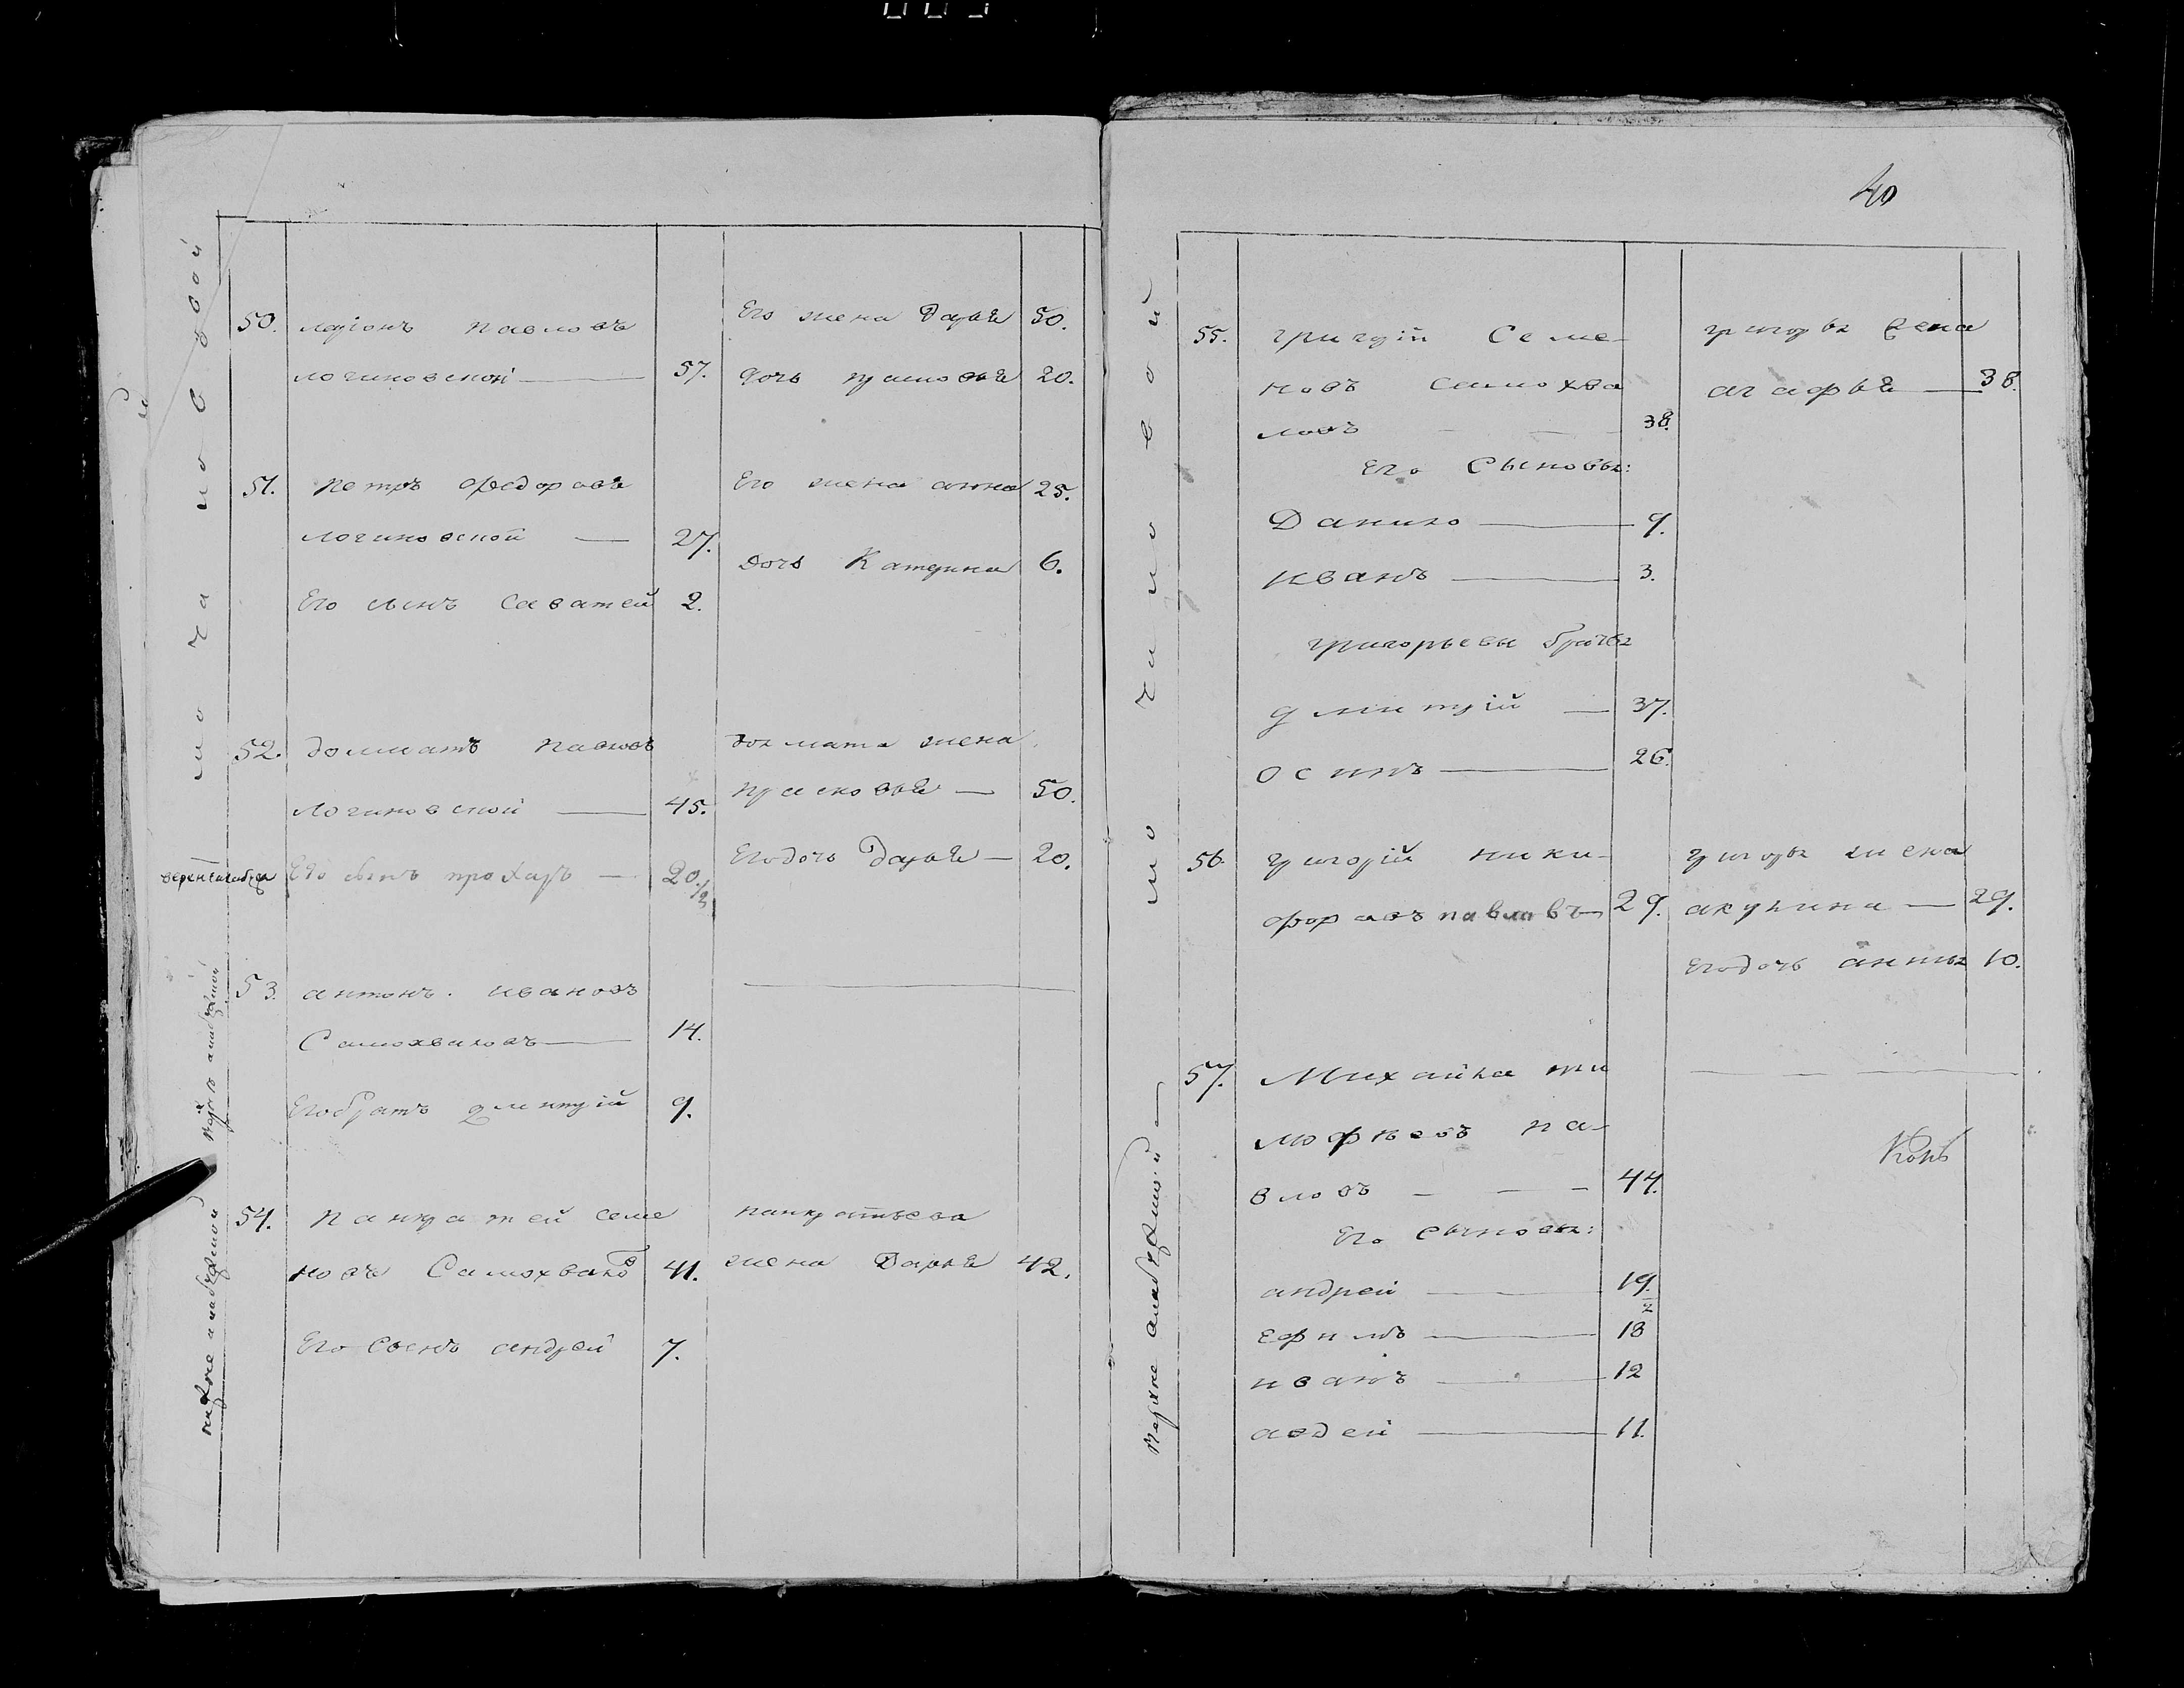 логиновой
50. ларіонъ павловъ
логиновской 57.
Его жена Дарья 50.
дочь прасковья 20.
51. петръ федоровъ
логиновской 27.
Его сынъ Саватей 2.
Его жена анна 25.
дочь Катерина 6.
52. долматъ павловъ
логиновской 45.
Его сынъ прохаръ 20 1/2
долмата жена
прасковья 50.
Его дочь Дарья 20.
53. антонъ ивановъ
Самохваловъ 14.
Его братъ дмитрій 9.
54. панкратей семе
новъ Самохвало 41.
Его Сынъ андрей 7.
панкратьева
жена Дарья 42.
40
логиновой
55. григорій Семе-
новъ самохва
ловъ 38.
Его Сыновья:
Данило 9.
иванъ 3.
григорьевы братья
дмитрій 37.
осипъ 26.
григорья жена
агафья 38.
56 григорій ники-
форовъ павловъ 29.
григорья жена
акулина 29.
Его дочь анна 10.
57. Михайла ти
мофѣевъ па-
вловъ 44.
Его сыновья:
андрей 19. 2
ефимъ 18
иванъ 12
авдей 11.